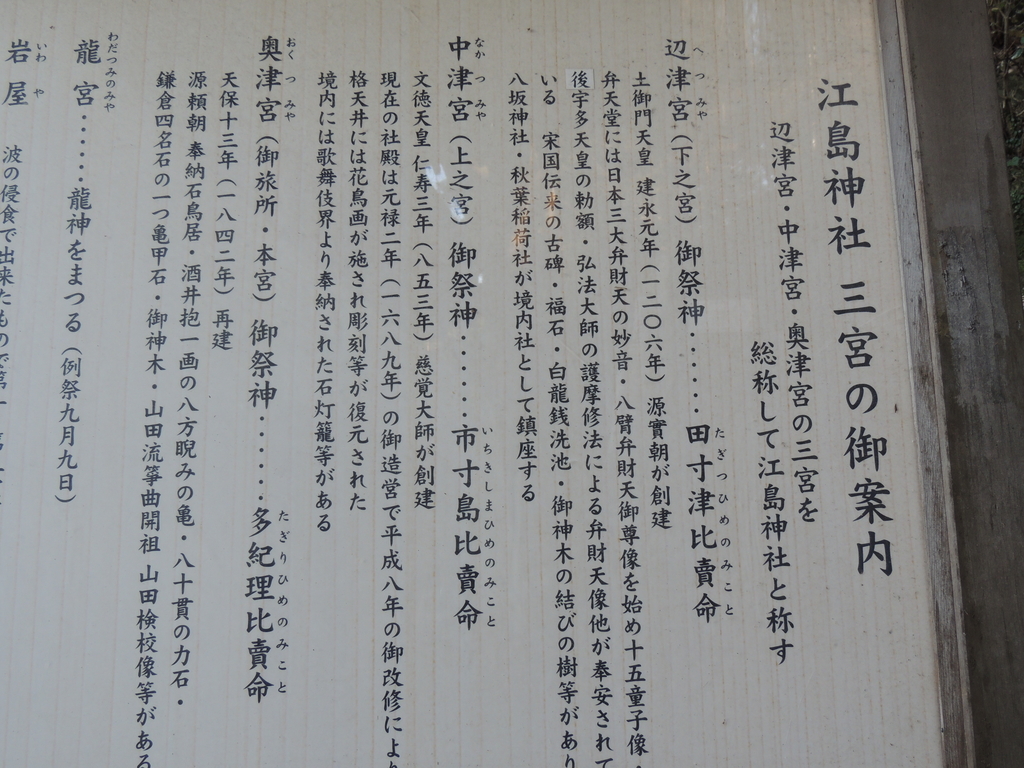 江島神社 三宮の御案内
辺津宮・中津宮・奥津宮の三宮を
総称して江島神社と称す
辺津宮（下之宮）御祭神・・・・・・田寸津比賣命
へつみや
たぎつひめのみこと
土御門天皇 建永元年（一二〇六年）源實朝が創建
弁天堂には日本三大弁財天の妙音・八臂弁財天御尊像を始め十五童子像・
後宇多天皇の勅額・弘法大師の護摩修法による弁財天像他が奉安されて
いる 宋国伝来の古碑・福石・白龍銭洗池・御神木の結びの樹等があり
八坂神社・秋葉稲荷社が境内社として鎮座する
中津宮（上之宮）御祭神・・・・・・市寸島比賣命
なかつみや
いちきしまひめのみこと
文徳天皇 仁寿三年（八五三年）慈覚大師が創建
現在の社殿は元禄二年（一六八九年）の御造営で平成八年の御改修により
格天井には花鳥画が施され彫刻等が復元された
境内には歌舞伎界より奉納された石灯籠等がある
奥津宮（御旅所・本宮）御祭神・・・・・・多紀理比賣命
おくつみや
たぎりひめのみこと
天保十三年（一八四二年）再建
源頼朝 奉納石鳥居・酒井抱一画の八方睨みの亀・八十貫の力石・
鎌倉四名石の一つ亀甲石・御神木・山田流箏曲開祖 山田検校像等がある
龍宮・・・・・・龍神をまつる（例祭九月九日）
わだつみのみや
岩屋 波の侵食で出来たもので第一
いわや